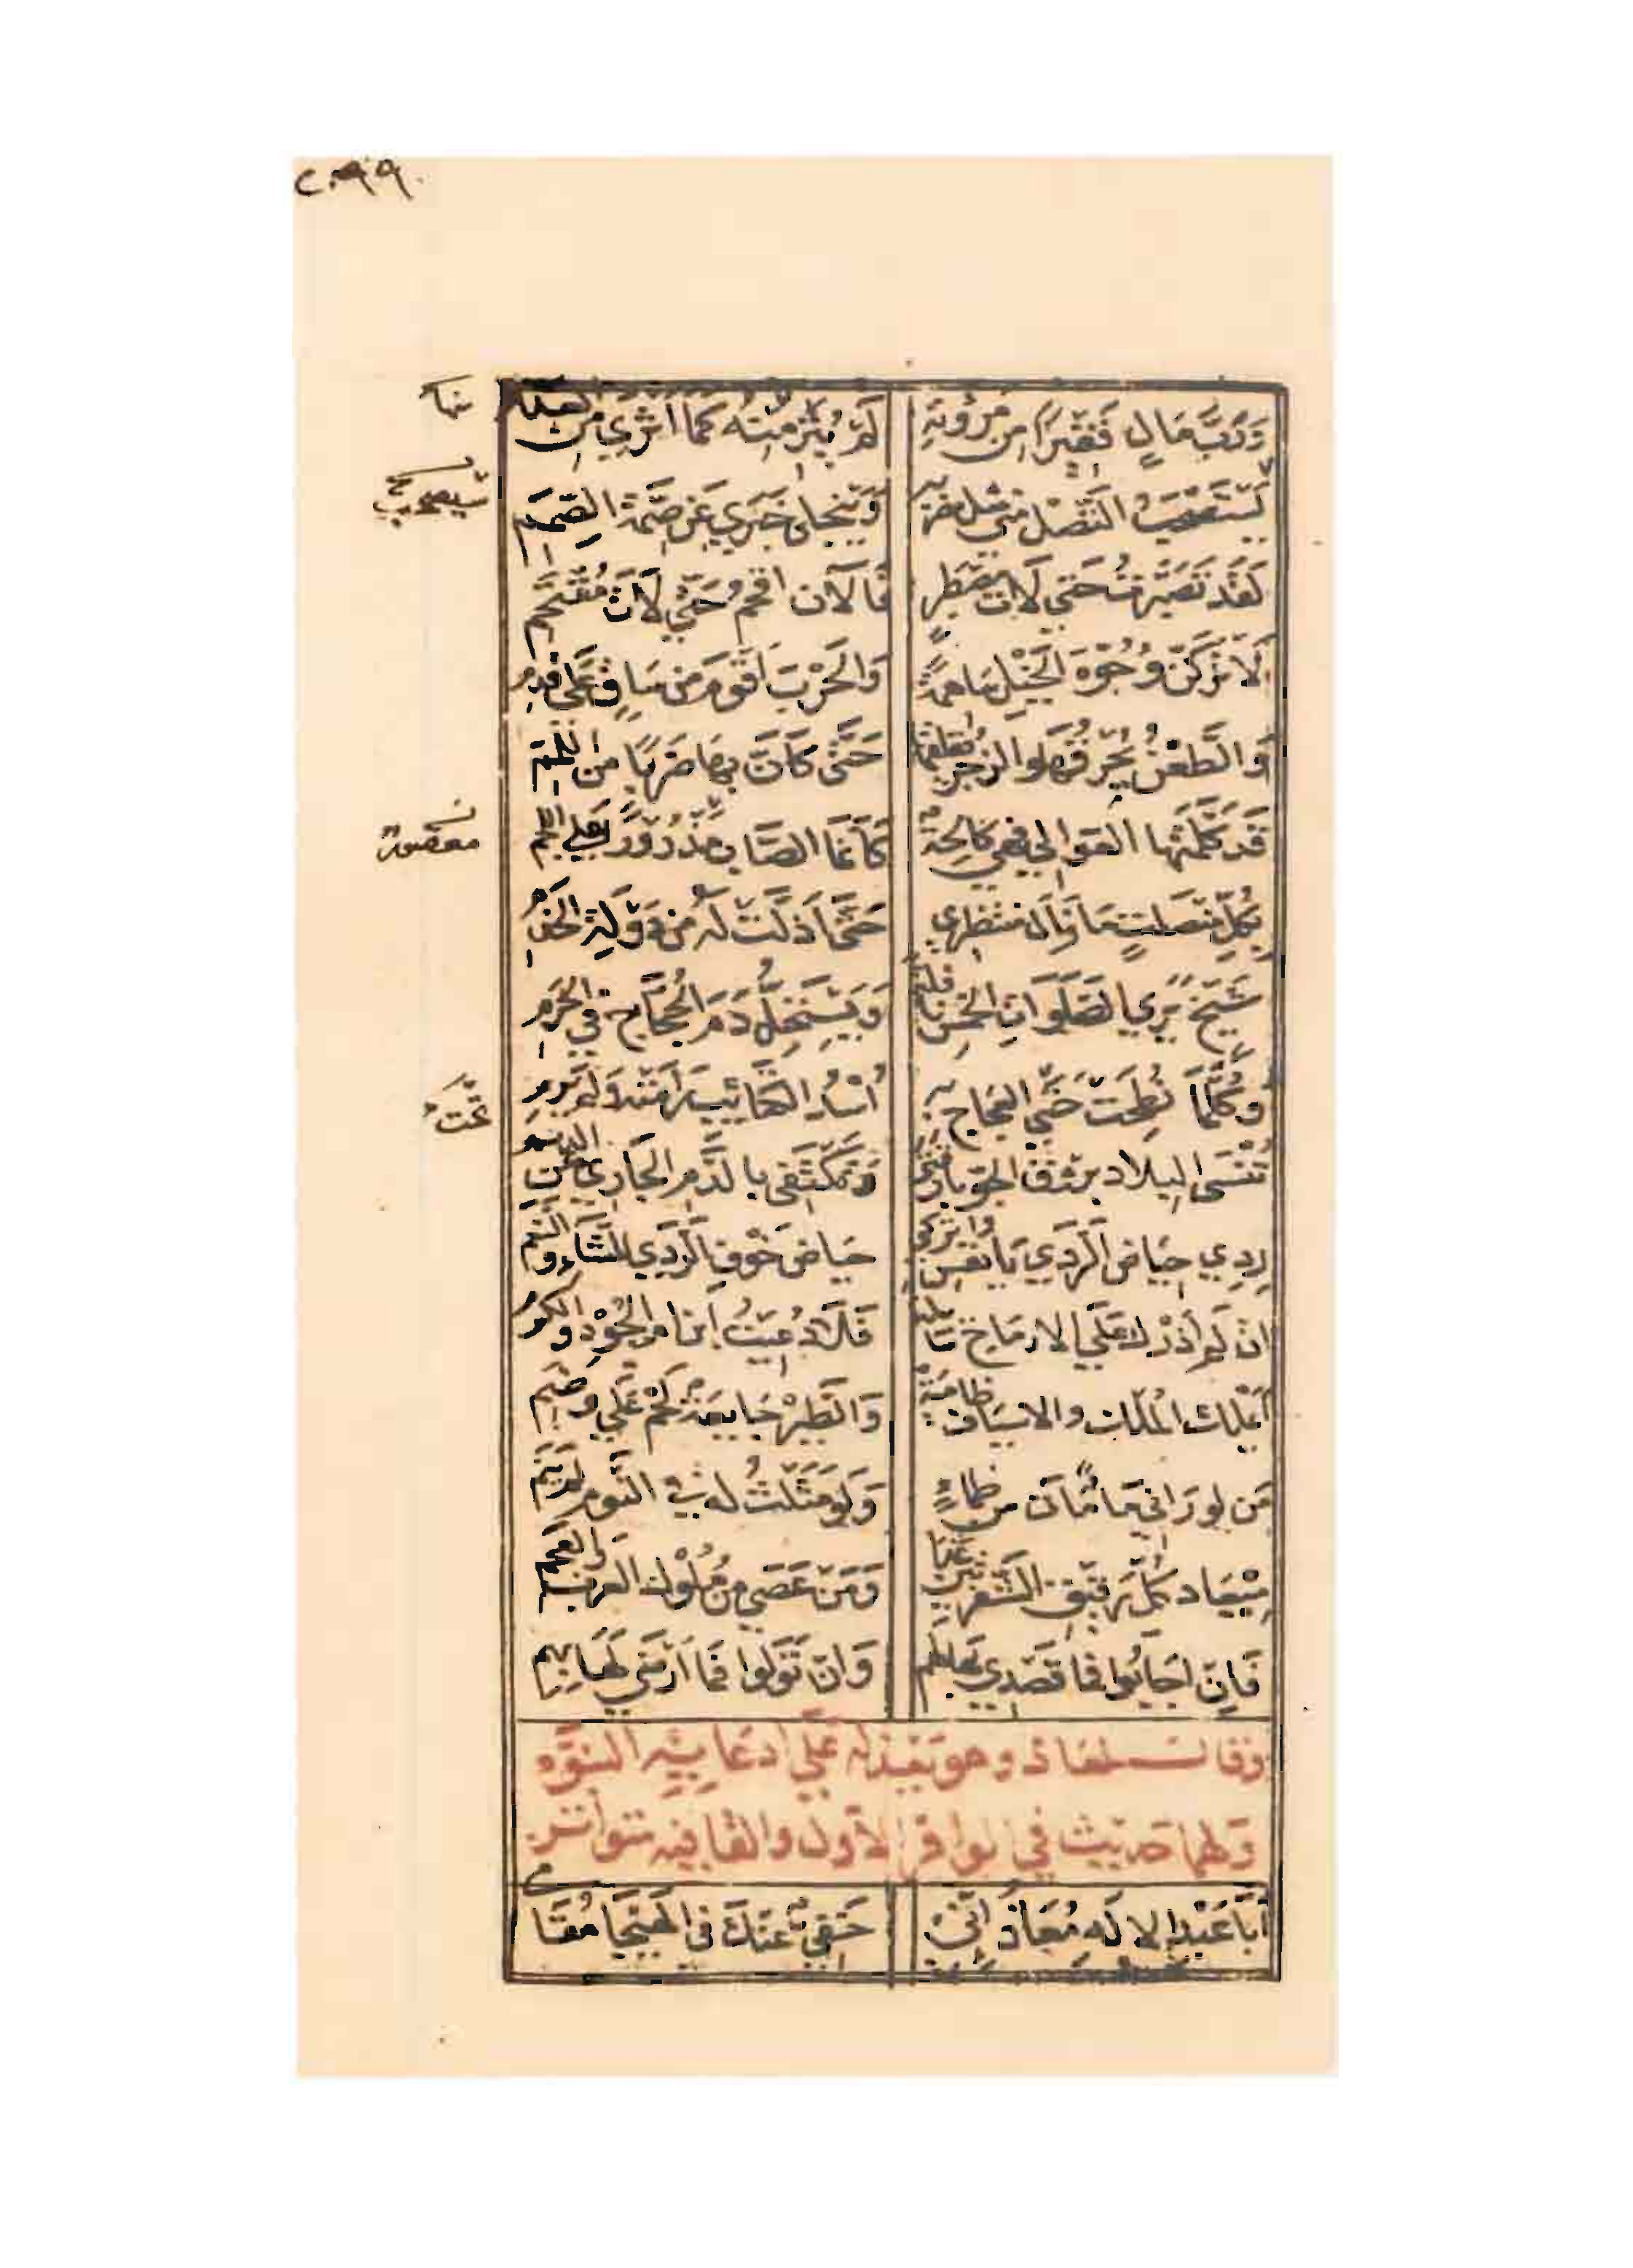 ٢٠٩٩
وَرَبَّ مَالٍ فَقِيْرًا مِن مُرُوَّتِهِ لَمْ يُثْرِ مِنْهُ كَمَا اَثْرِي مِنَ العدم
منها
سَيَصْحَبُ النَّصْلُ مني مثل مضربه وَيَنْجلي خَبَري عَن صِمَّةِ الصِمَمِ
سيصحب
لَقَد تَصَبَّرْتُ حَتى لَاتَ مصطبر فَالآن اقحم حَتّي لَاتَ مُقْتَحم
لَاتركَنَّ وُجُوْهَ الخَيْل ساهمةً وَالحَرْبَ اَقْوَم من سَاقٍ عَلي قدمِ
وَالطَّعْنُ يُحْرِقُهَا والزجر يقلقها حَتَّى كَاَنَّ بِهَا ضَرْبًا من اللمم
قَد كَلَّمَتْها العَوالي فهي كَالِحَةٌ كَاَنَّمَا الصَّاب مَذْرُوْرٌ عَلي اللجم
معصور
بِكُلِّ منصَلتٍ مَا زَالَ منتظري حَتَّى اَدَلْتُ لَهُ من دَوْلَةِ الخَدَمِ
شَيْخ يَرَي الصَّلَوَاتِ الخمسَ نافلةً وَيَسْتَحِلُّ دَمَ الحُجَّاجِ في الحَرَمِ
وَكُلَّمَا نُطِحَتْ تَحْتَ العَجَاجِ بِهِ اُسْدُ الكَتَائِبِ رَامَتْهُ وَلَم يَرِمِ
تحت
تُنْسى البلادَ بروقَ الجَوِّ بارقتي وَتَكْتَفِي بالدَّمِ الجَارِي عَنِ الديم
رِدِي حِيَاضَ الرَّدَي يَا نفس واتركي حيَاضَ خَوْفِ الرَّدَي للشاءِ والنعم
ان لم أذَرْكِ عَلَي الارمَاح سَائلة فَلَا دُعِيْتُ ابْنَ امّ الجُوْدِ والكرم
اَيَمْلك المُلك والاسيَاف ظامئة وَالطَّيْرُ جَايعَةٌ لَحْمٌ عَلَي وَضَم
مَن لو رَاني مَاءً مَاتَ من ظماءٍ وَلَو مَثَلْتُ له في النَّوم لم يَنَم
مِيْعَاد كُلِّ رَقيق الشَّفرتين غدا وَمَن عَصَي من مُلُوْك العرب والعجم
فَاِن اجَابُوا فمَا قَصْدِي بهَا لهم وَان تَوَلَّوا فمَا اَرْضَي لَهَا بِهِم
وقال لمعاذ وهو يعذله عَلَي ادعايِه النبوّه
وَلها حديث في الوافر الأول والقافيه متواتر
اَبَا عَبْدِ الالَه مُعَاذ اِنّي خَفِيٌّ عَنْكَ في الهَيْجَا مُقَامي